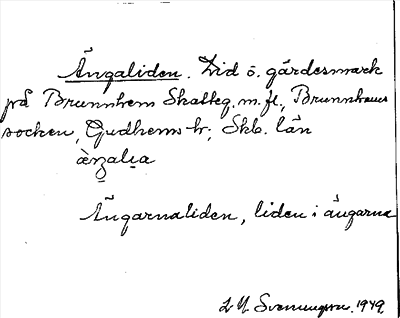 Ängaliden. Lid ö. gärdesmark
på Brunnhem Skatteg. m. fl., Brunnhems
socken, Gudhems hr, Skb. län
Ängarnaliden, liden i ängarna
S. M. Svenungsson. 1949.